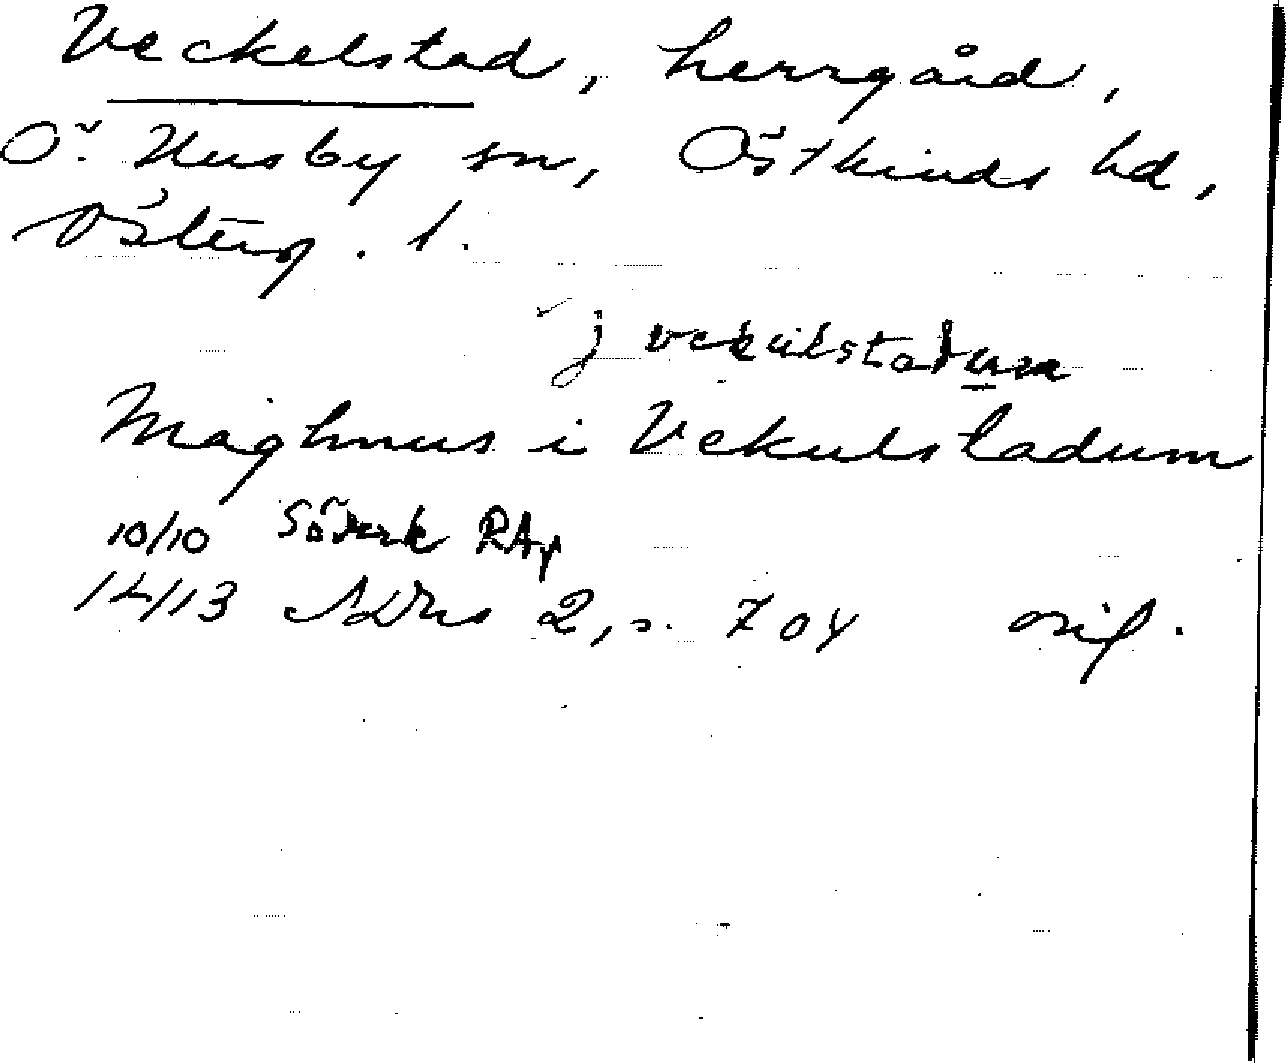 Veckelstad, herrgård,
Ö. Husby sn, Östkinds hd,
Österg. l.
j vekulstadum
Maghnus i Vekulstadum
10/10 Söderk RAp
1413 SDns 2, s. 704 orig.